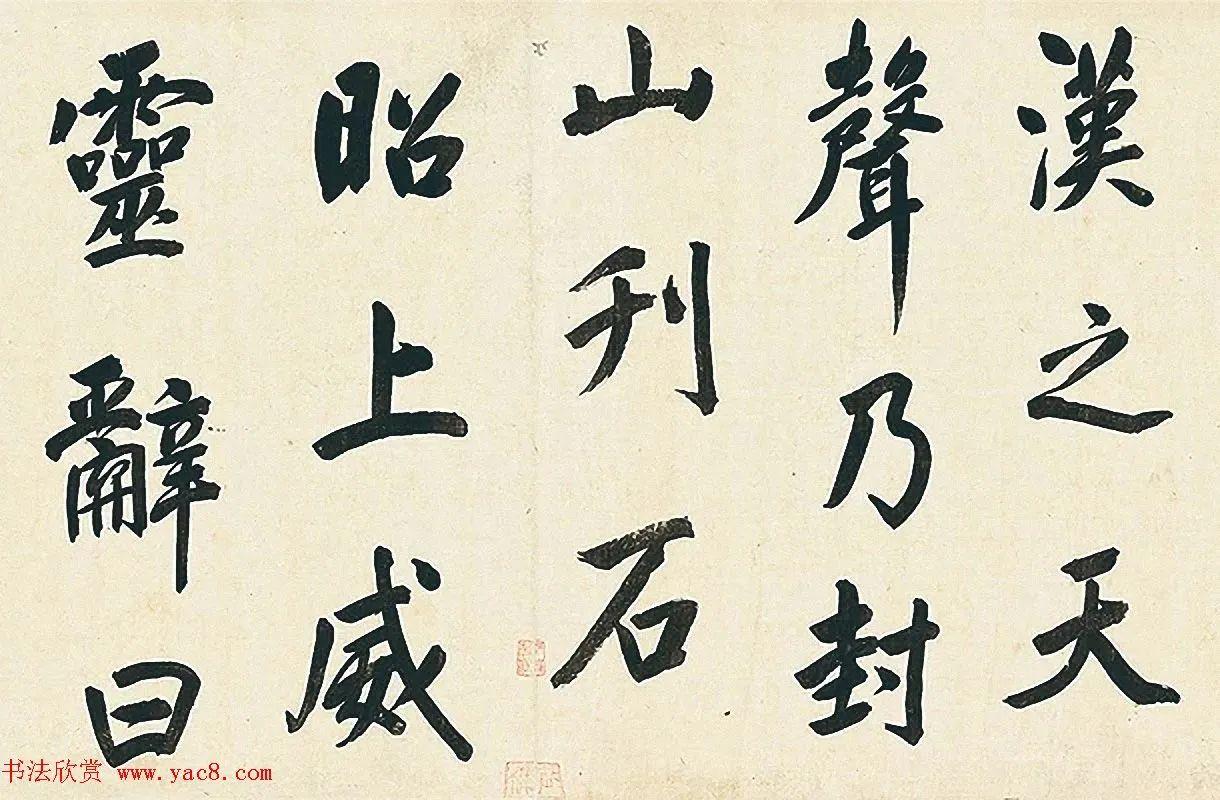 漢之天
聲乃封
山刋石
昭上威
靈辭曰
书法欣赏 www.yac8.com